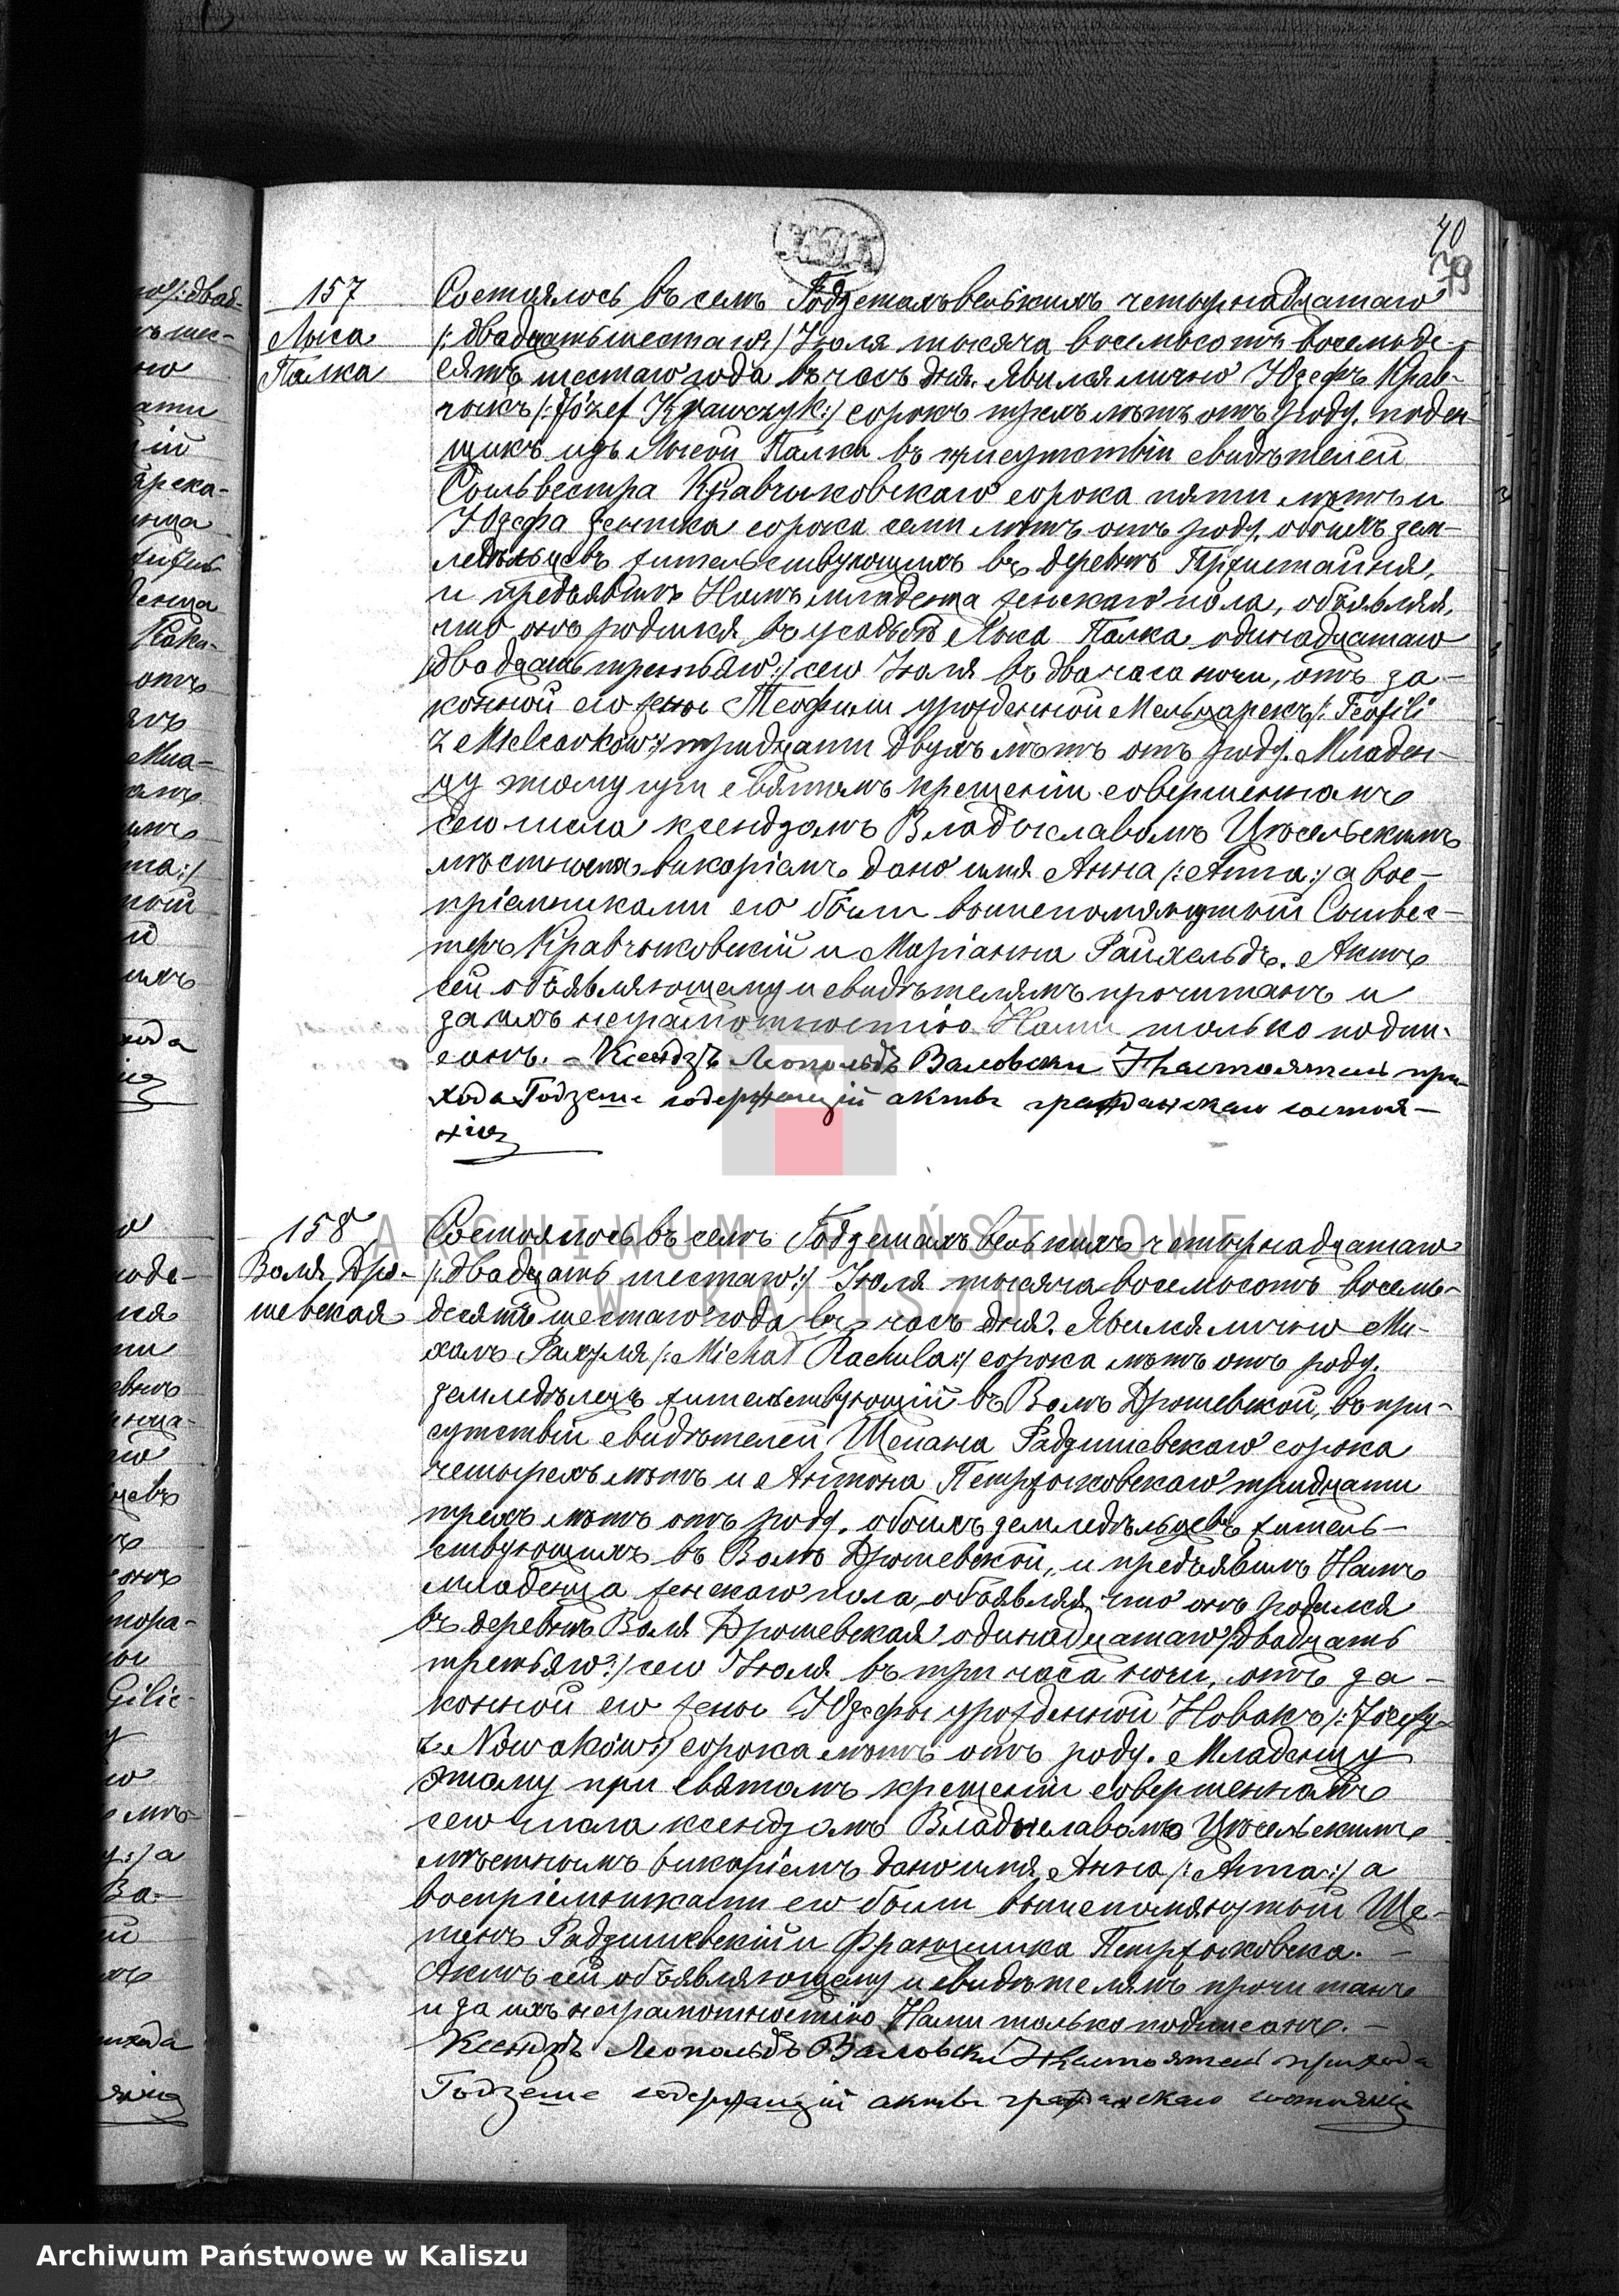 40
79
157
Лыса
Палка
Состоялось въ селѣ Годзешахъ велькихъ четырнадцатаго
/: двадцать шестаго :/ Іюля тысяча восемьсотъ восемьде-
сятъ шестаго года въ часъ дня. Явился лично Юзефъ Крав-
чикъ /: Józef Krawczyk :/ сорокъ трехъ лѣтъ отъ роду, поден-
щикъ изъ Лысей Палки въ присутствіи свидѣтелей
Сыльвестра Кравчиковскаго сорока пяти лѣтъ и
Юзефа сорока семи лѣтъ отъ роду, обоихъ зем-
ледѣльцевъ жительствующихъ въ деревнѣ Пржистайня,
и предъявилъ Намъ младенца женскаго пола, объявляя,
что онъ родился въ усадьбѣ Лыса Палка одинадцатаго
/: двадцать третьяго :/ сего Іюля въ два часа ночи, отъ за-
конной его жены Теофили урожденной Мельцарекъ /: Teofili
z Melcarków :/ тридцати двухъ лѣтъ отъ роду. Младен-
цу этому при святомъ крещеніи совершенномъ
сего числа ксендзомъ Владыславомъ Цѣсельскимъ
мѣстнымъ викаріемъ дано имя Анна /: Anna :/ а вос-
пріемниками его были вышепомянутый Сыльвес-
теръ Кравчиковскій и Маріанна Райхельдъ. Актъ
сей объявляющему и свидѣтелямъ прочитанъ и
за ихъ неграмотностію Нами только подпи-
санъ. – Ксендзъ Леопольдъ Валовски Настоятель при-
хода Годзеше содержащій акты гражданскаго состоя-
нія
158
Воля Дро-
шевская
Состоялось въ селѣ Годзешахъ велькихъ четырнадцатаго
/: двадцать шестаго :/ Іюля тысяча восемьсотъ восемь-
десятъ шестаго года въ часъ дня. Явился лично Ми-
халъ Рахуля /: Michał Rachula :/ сорока лѣтъ отъ роду,
земледѣлецъ жительствующій въ Волѣ Дрошевской, въ при-
сутствіи свидѣтелей Щепана Радзишевскаго сорока
четырехъ лѣтъ и Антона Петржиковскаго тридцати
трехъ лѣтъ отъ роду, обоихъ земледѣльцевъ житель-
ствующихъ въ Волѣ Дрошевской, и предъявилъ Намъ
младенца женскаго пола, объявляя, что онъ родился
въ деревнѣ Воля Дрошевская одинадцатаго /: двадцать
третьяго :/ сего Іюля въ три часа ночи, отъ за-
конной его жены Юзефы урожденной Новакъ /: Józefy
z Nowaków :/ сорока лѣтъ отъ роду. Младенцу
этому при святомъ крещеніи совершенномъ
сего числа ксендзомъ Владыславомъ Цѣсельскимъ
мѣстнымъ викаріемъ дано имя Анна /: Anna :/ а
воспріемниками его были вышепомянутый Ще-
панъ Радзишевскій и Францишка Петржиковска. –
Актъ сей объявляющему и свидѣтелямъ прочитанъ
и за ихъ неграмотностію Нами только подписанъ. –
Ксендзъ Леопольдъ Валовски Настоятель прихода
Годзеше содержащій акты гражданскаго состоянія
ARCHIWUM PAŃSTWOWE
W KALISZU
Archiwum Państwowe w Kaliszu